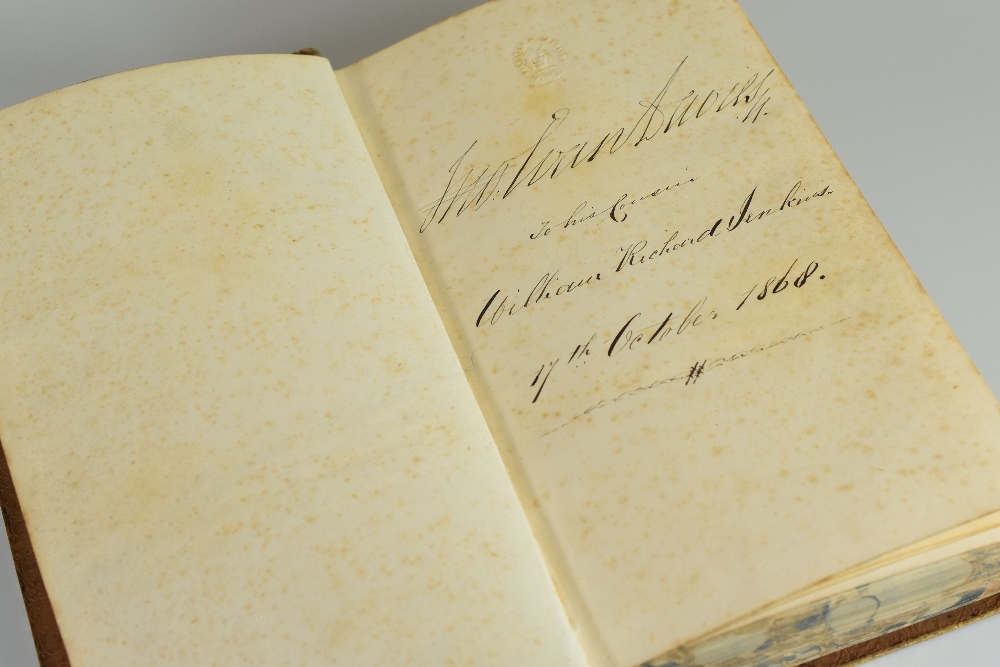 Jno. Evan Davies
To his Cousin
William Richard Jenkins.
17th October 1868.